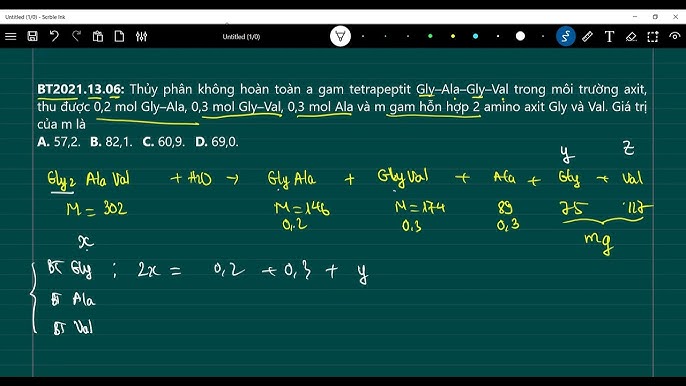 Untitled (1/0) - Scrble Ink
Untitled (1/0)
BT2021.13.06: Thủy phân không hoàn toàn a gam tetrapeptit Gly–Ala–Gly–Val trong môi trường axit,
thu được 0,2 mol Gly–Ala, 0,3 mol Gly–Val, 0,3 mol Ala và m gam hỗn hợp 2 amino axit Gly và Val. Giá trị
của m là
A. 57,2. B. 82,1. C. 60,9. D. 69,0.
y z
Gly2 Ala Val + H2O → Gly Ala + Gly Val + Ala + Gly + Val
M = 302 M = 146 M = 174 89 75 117
0,2 0,3 0,3 mg
x
BT Gly : 2x = 0,2 + 0,3 + y
BT Ala
BT Val